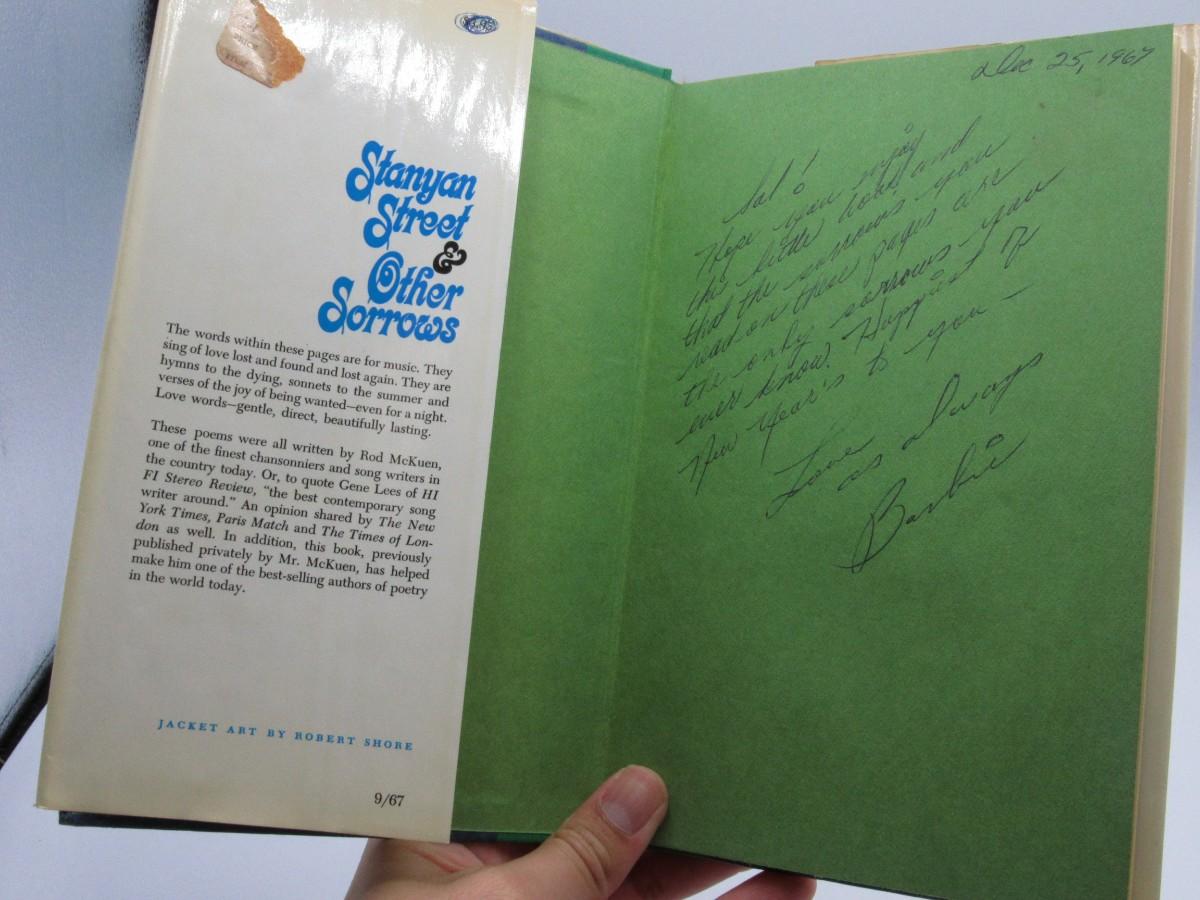 Stanyan
Street
&
Other
Sorrows
The words within these pages are for music. They
sing of love lost and found and lost again. They are
hymns to the dying, sonnets to the summer and
verses of the joy of being wanted—even for a night.
Love words—gentle, direct, beautifully lasting.
These poems were all written by Rod McKuen,
one of the finest chansonniers and song writers in
the country today. Or, to quote Gene Lees of HI
FI Stereo Review, “the best contemporary song
writer around.” An opinion shared by The New
York Times, Paris Match and The Times of Lon-
don as well. In addition, this book, previously
published privately by Mr. McKuen, has helped
make him one of the best-selling authors of poetry
in the world today.
JACKET ART BY ROBERT SHORE
9/67
Dec 25, 1967
Hope you enjoy
this little book and
that the sorrows you
read on these pages are
the only sorrows you
ever know. Happiest of
New Year's to you —
Love
as always
Barbie